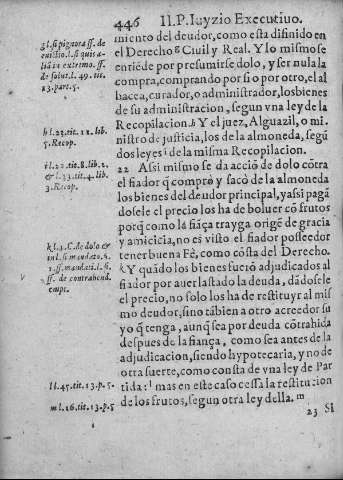 446 II.P. Iuyzio Executiuo.
miento del deudor, como esta difinido en
el Derecho g Ciuil y Real. Y lo mismo se
entiẽde por presumirse dolo, y ser nula la
compra, comprando por si o por otro, el al
bacea, curador, o administrador, los bienes
de su administracion, segun vna ley de la
Recopilacion. h Y el juez, Alguazil, o mi
nistro de justicia, los de la almoneda, segũ
dos leyes i de la misma Recopilacion.
22 Assi mismo se da acciõ de dolo cõtra
el fiador q̃ compro y sacò de la almoneda
los bienes del deudor principal, y assi pagã
dosele el precio los ha de boluer cõ frutos
porq̃ como la fiãça trayga origẽ de gracia
y amicicia, no es visto el fiador posseedor
tener buena Fè, como cõsta del Derecho.
k Y quãdo los bienes fuerõ adjudicados al
fiador por auer lastado la deuda, dãdosele
el precio, no solo los ha de restituyr al mis
mo deudor, sino tãbien a otro acreedor su
yo q̃ tenga, aunq̃ sea por deuda cõtrahida
despues de la fiança, como sea antes de la
adjudicacion, siendo hypotecaria, y no de
otra suerte, como consta de vna ley de Par
tida: l mas en este caso cessa la restitucion
de los frutos, segun otra ley della. m
23 Si
g l. si pignora ff. de
euictio. l. si quis a-
liã in extremo. ff.
de solut. l. 49. tit.
13. part. 5.
h l. 23. tit. 11. lib.
5. Recop.
i l. 22. tit. 8. lib. 2.
& l. 33. tit. 4. lib.
3. Recop.
k l. 1. C. de dolo &
in l. si mandato. §.
1. ff. mandati. l. 6.
ff. de contrahend.
empt.
l l. 45. tit. 13. p. 5.
m l. 16. tit. 13. p. 5